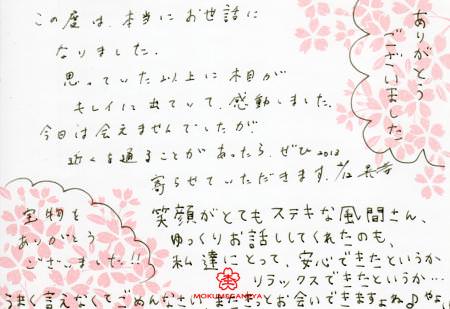 この度は、本当にお世話に
なりました。
思っていた以上に木目が
キレイに出ていて、感動しました。
今日は会えませんでしたが
近くを通ることがあったら、ぜひ
寄らせていただきます。
2013
ありがとう
ございました
宝物を
ありがとう
ございました!!
笑顔がとてもステキな風間さん、
ゆっくりお話ししてくれたのも、
私達にとって、安心できたというか
リラックスできたというか…
うまく言えなくてごめんなさい。またきっとお会いできますよね♪
MOKUMEGANEYA